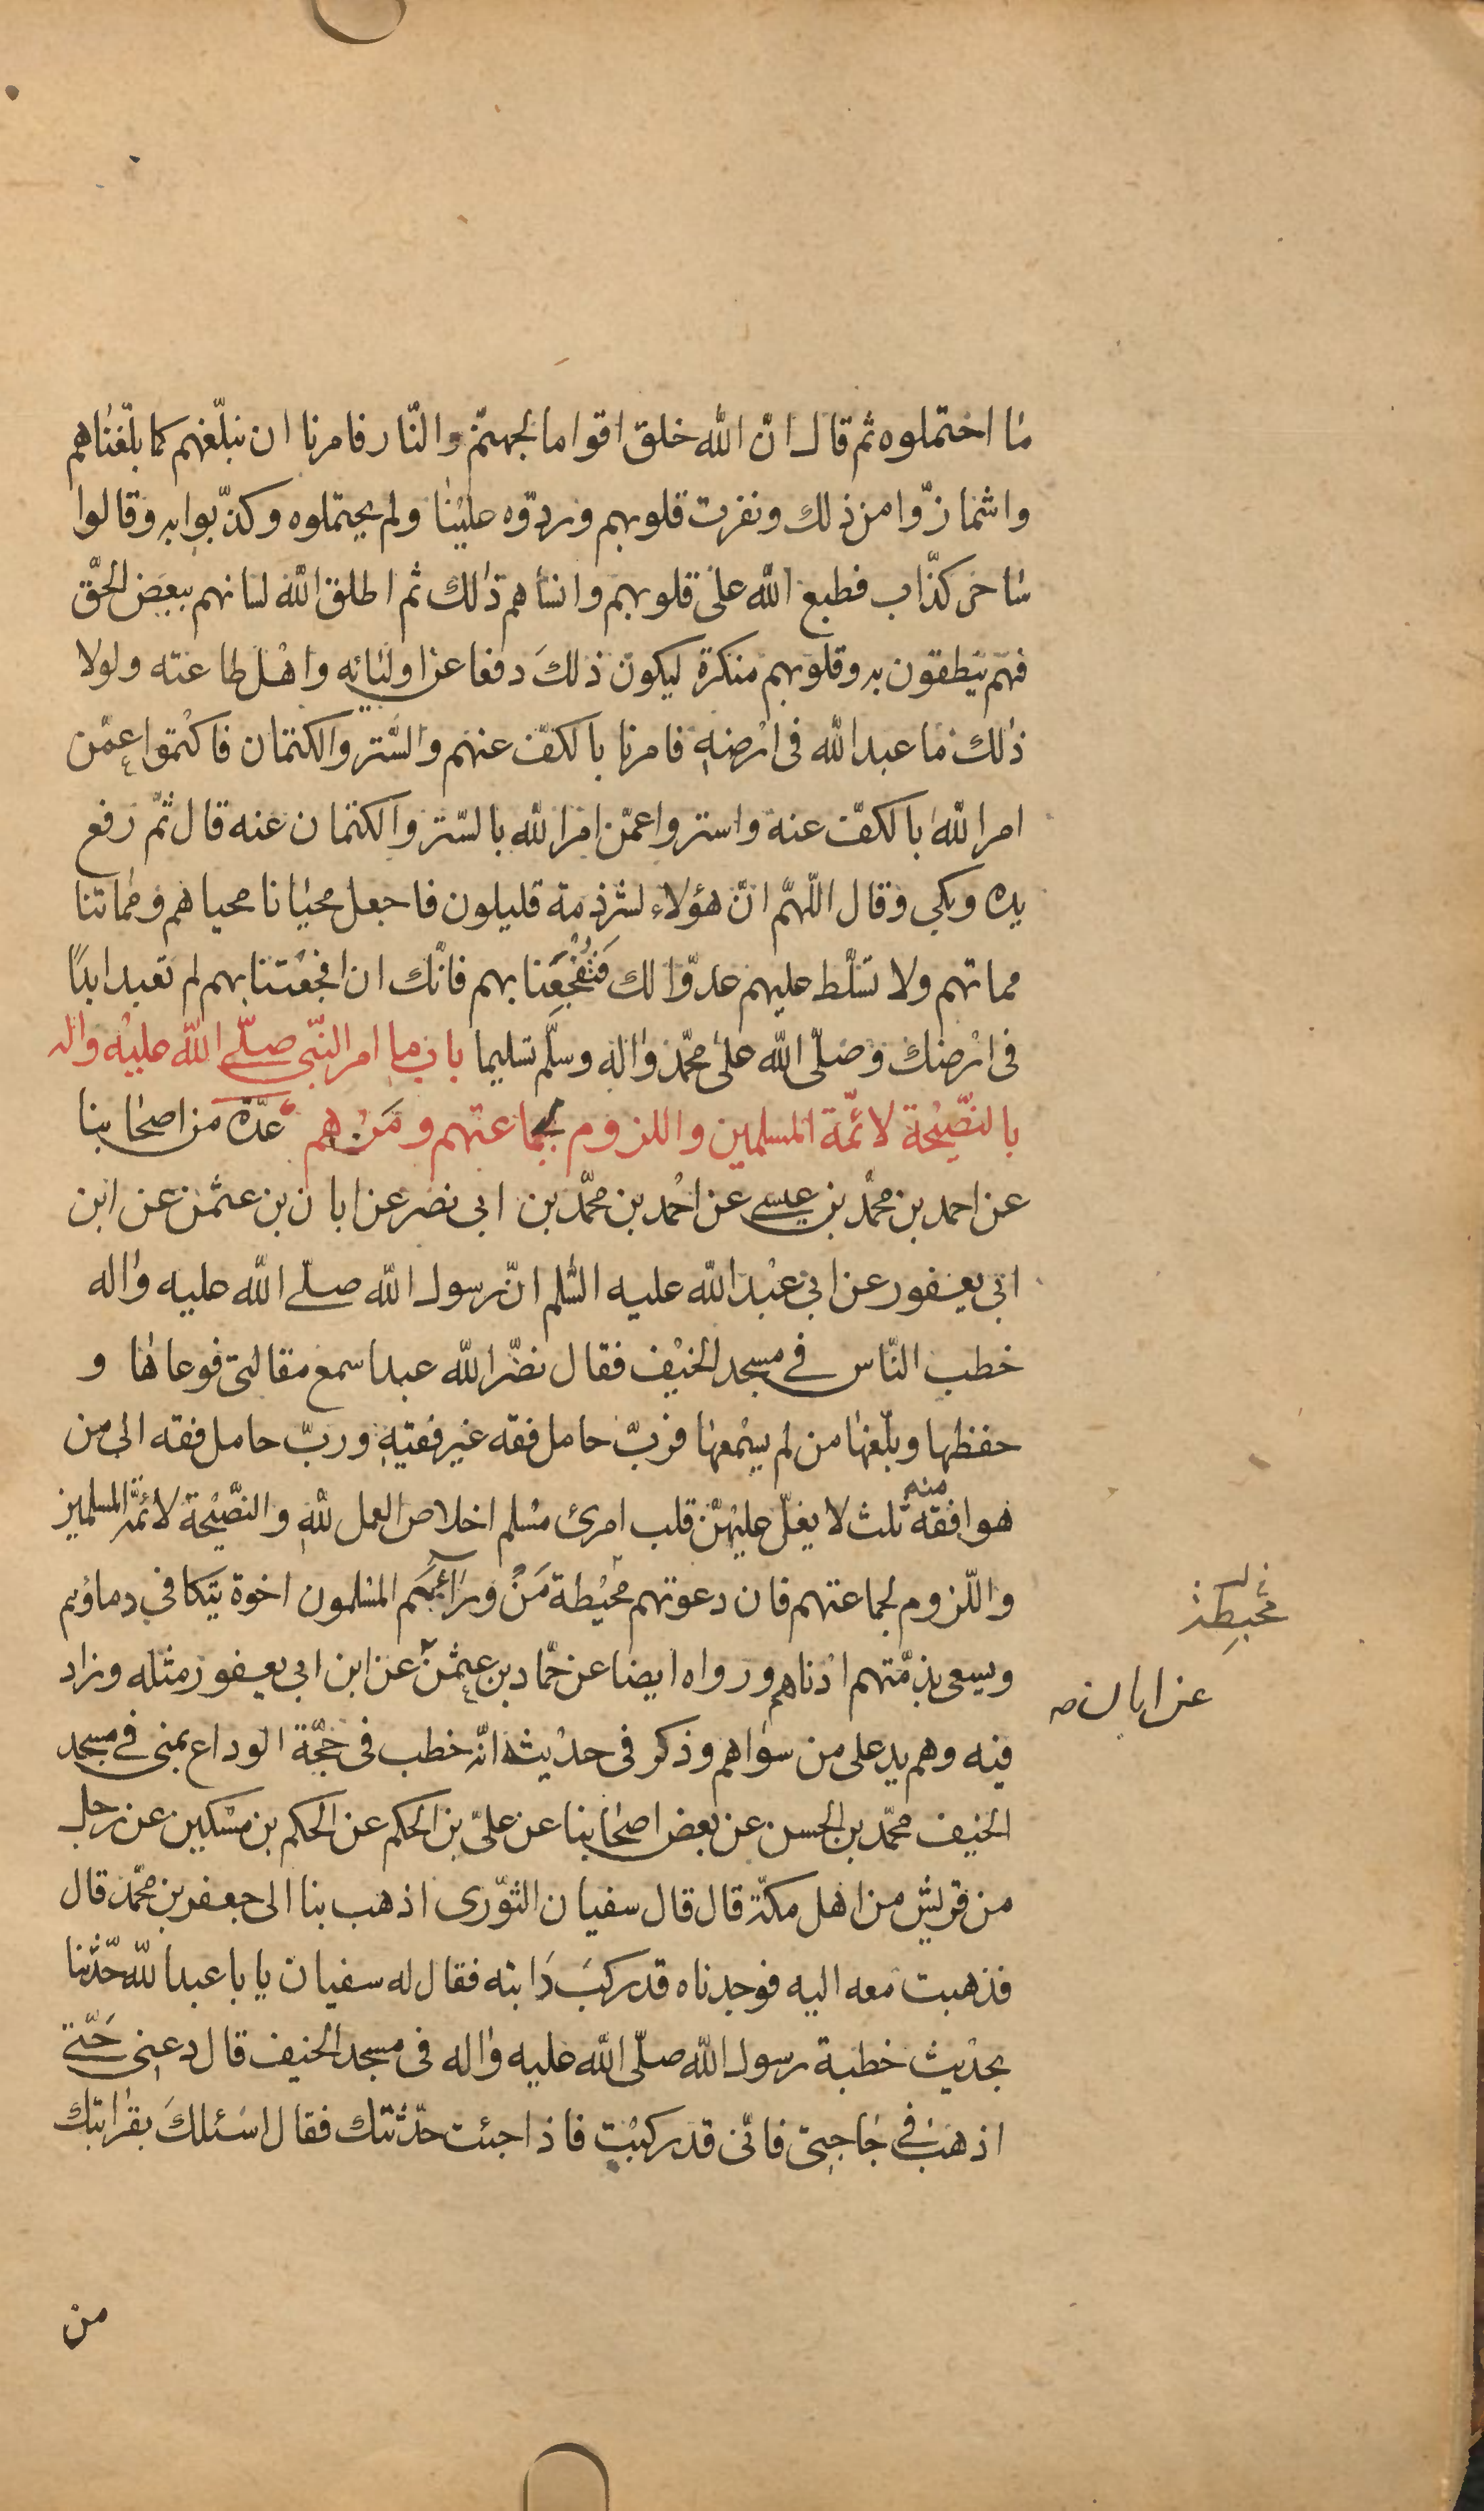 ما احتملوه ثم قال انّ الله خلق اقواما لجهنّم والنّار فامرنا ان نبلّغهم كما بلّغناهم
واشمازّوا من ذلك ونفرت قلوبهم وردّوه علينا ولم يحتملوه وكذّبوا به وقالوا
ساحر كذّاب فطبع الله على قلوبهم وانساهم ذلك ثم اطلق الله لسانهم ببعض الحقّ
فهم ينطقون به وقلوبهم منكرة ليكون ذلكَ دفعا عن اوليائه واهْل طاعته ولولا
ذلك ما عبد الله فى ارْضه فامرنا بالكفّ عنهم والسَّتر والكتمان فاكْتموا عمّن
امر الله بالكفّ عنه واستروا عمّن امر الله بالسّتر والكتمان عنه قال ثمّ رفع
يده وبكى وقال اللّهمّ انّ هؤلاء لشرذمة قليلون فاجعل محيانا محياهم ومماتنا
مماتهم ولا تسلّط عليهم عدوّا لك فَتُفْجِعَنا بهم فانّك ان افجعْتنا بهم لم تعبد ابدًا
فى ارْضك وصلّى الله على محمّد واله وسلّم تسليما باب ما امر النّبى صلّى الله عليْه واله
بالنّصيْحة لائمّة المسلمين واللزوم لجماعتهم ومَنْ هم عدّة من اصحابنا
عن احمد بن محمّد بن عيسى عن احْمد بن محمّد بن ابى نصر عن ابان بن عثمٰن عن ابن
ابى يعفور عن ابى عبْد الله عليه السّلم انّ رسول الله صلى الله عليه واله
خطب النّاس فى مسجد الخيْف فقال نضّر الله عبدا سمع مقالتى فوعاها و
حفظها وبلّغها من لم يسْمعها فربّ حامل فقه غير فقيه وربّ حامل فقه الى من
هو افقه منه ثلث لا يغلّ عليهنّ قلب امرئ مسْلم اخلاص العمل لله والنّصيْحة لائمّة المسلمين
واللّزوم لجماعتهم فان دعوتهم محيْطة مَنْ ورائهم المسلمون اخوة يتكافى دماؤهم
ويسعى بذمّتهم ادْناهم ورواه ايضا عن حمّاد بن عثمٰن عن ابن ابى يعفور مثله وزاد
فيه وهم يد على من سواهم وذكر فى حديْثه انّه خطب فى حجّة الوداع بمنى فى مسجد
الخيف محمّد بن الحسن عن بعض اصحابنا عن علىّ بن الحكم عن الحكم بن مسْكين عن رجل
من قريش من اهل مكّة قال قال سفيان الثّورى اذهب بنا الى جعفر بن محمّد قال
فذهبت معه اليه فوجدناه قد ركبَ دَابته فقال له سفيان يابا عبد الله حدّثنا
بحديْث خطبة رسول الله صلّى الله عليه واله فى مسجد الخيف قال دعنى حَتّى
اذهب فى حاجتى فانّى قد ركبْت فاذا جئت حدّثتك فقال اسَئلكَ بقرابتك
محيطة
عن ابان
من